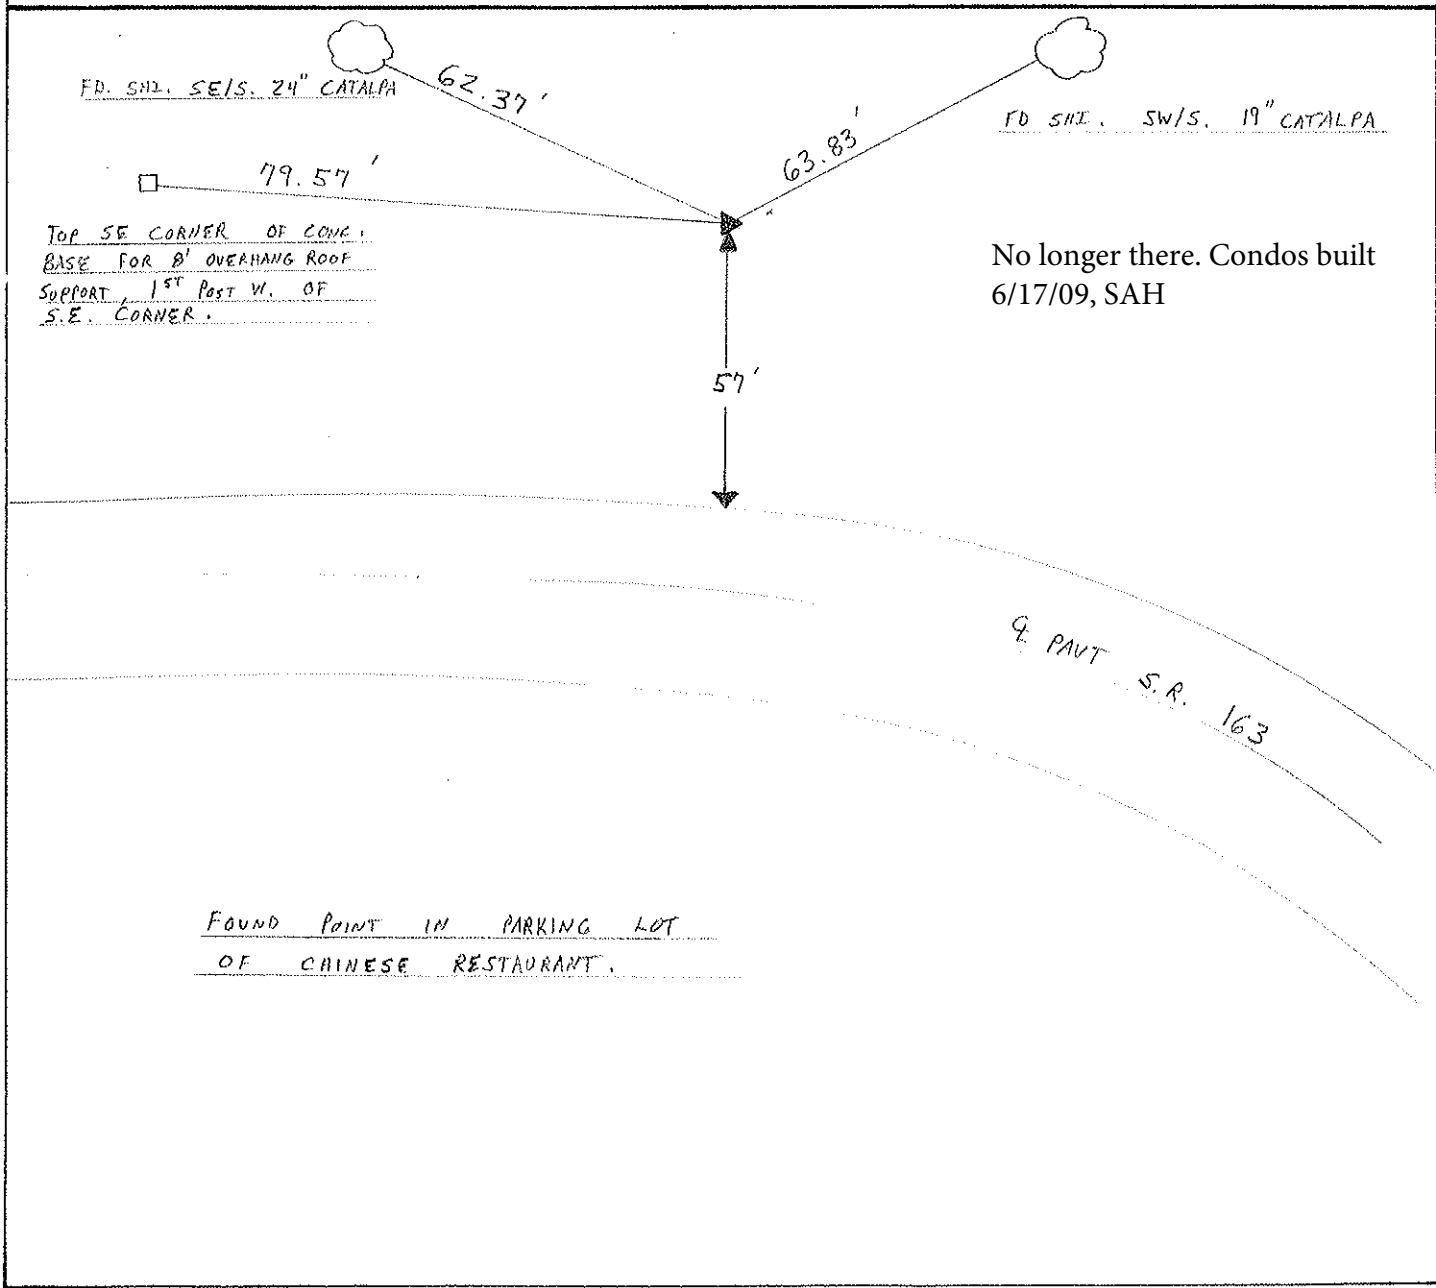 62.37'
FD. SHI. SE/S. 24" CATALPA
63.83'
FD SHI. SW/S. 19" CATALPA
79.57'
TOP SE CORNER OF CONC.
BASE FOR 8' OVERHANG ROOF
SUPPORT, 1ST POST W. OF
S.E. CORNER.
No longer there. Condos built
6/17/09, SAH
57'
℄ PAVT S.R. 163
FOUND POINT IN PARKING LOT
OF CHINESE RESTAURANT.